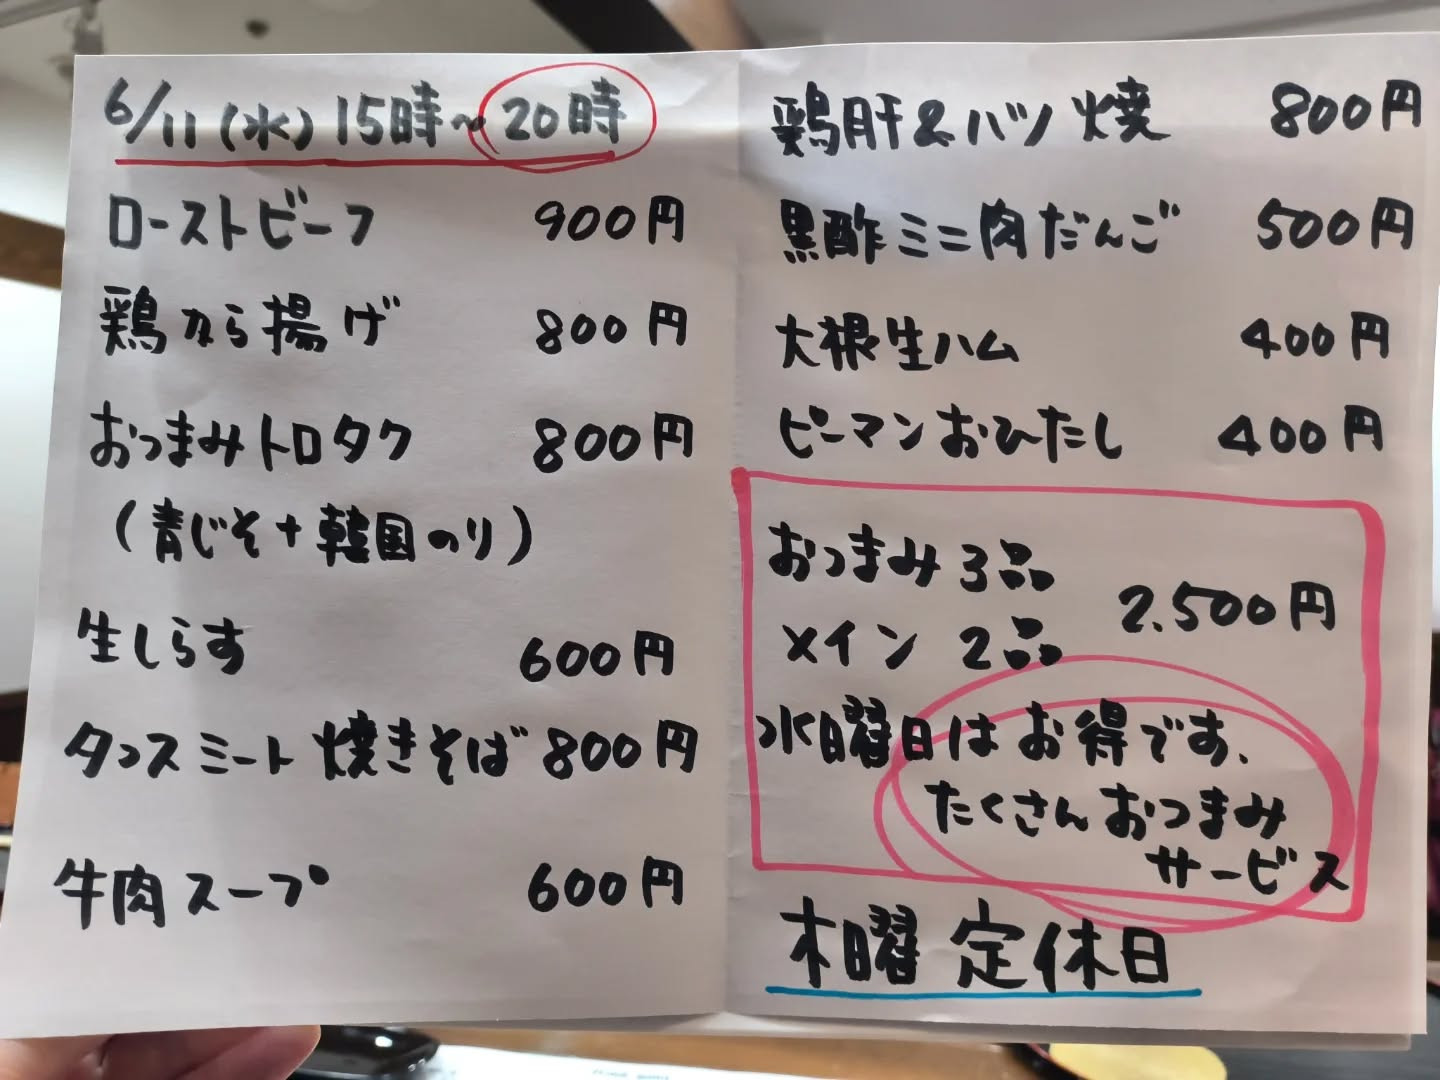 6/11(水)15時~20時
ローストビーフ 900円
鶏から揚げ 800円
おつまみトロタク 800円
(青じそ+韓国のり)
生しらす 600円
タコスミート焼きそば 800円
牛肉スープ 600円
鶏肝&ハツ焼 800円
黒酢ミニ肉だんご 500円
大根生ハム 400円
ピーマンおひたし 400円
おつまみ3品
メイン 2品 2.500円
水曜日はお得です、
たくさんおつまみ
サービス
木曜 定休日